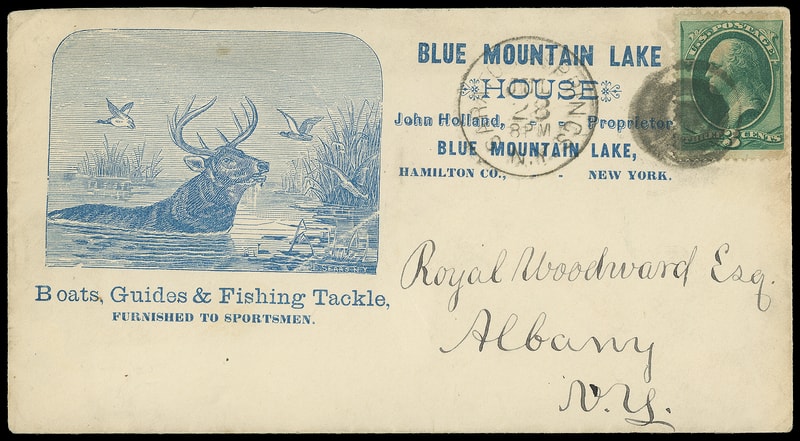 BLUE MOUNTAIN LAKE
HOUSE
John Holland, - - - Proprietor
BLUE MOUNTAIN LAKE,
HAMILTON CO., - NEW YORK.
U.S. POSTAGE
THREE 3 CENTS
SARATOGA SPRINGS
23
8 PM
N.Y.
Boats, Guides & Fishing Tackle,
FURNISHED TO SPORTSMEN.
Royal Woodward Esq.
Albany
N.Y.